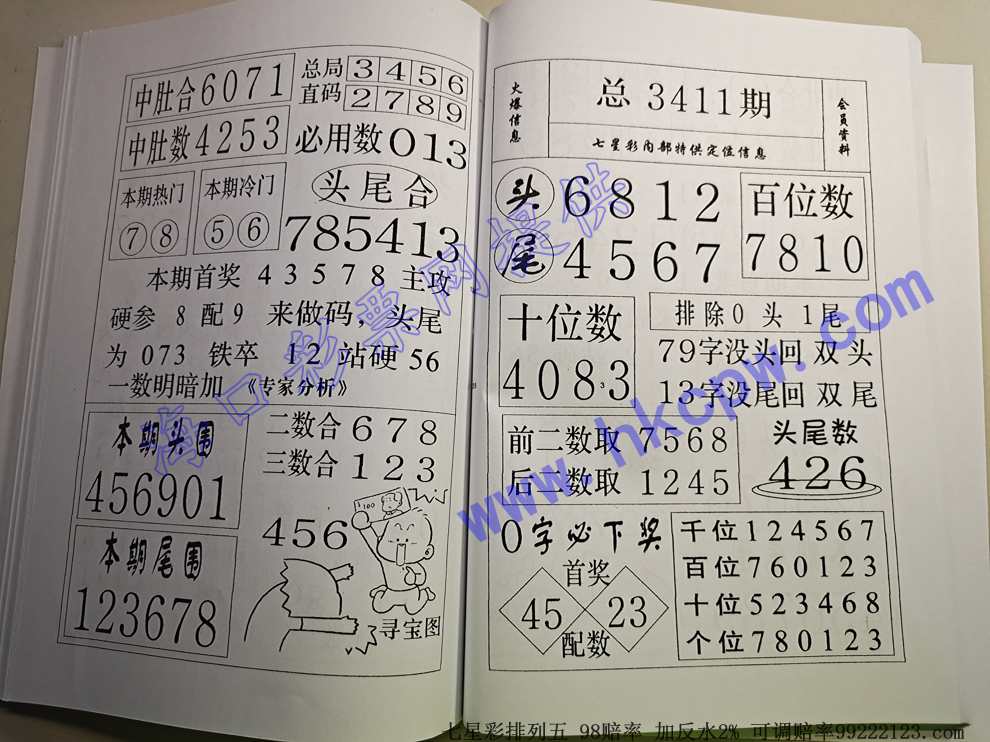 中肚合6071
中肚数4253
总局 3 4 5 6
直码 2 7 8 9
必用数013
本期热门
⑦⑧
本期冷门
⑤⑥
头尾合
785413
本期首奖 4 3 5 7 8 主攻
硬参 8 配 9 来做码，头尾
为 073 铁卒 12 站硬 56
一数明暗加 《专家分析》
本期头围
456901
本期尾围
123678
二数合 6 7 8
三数合 1 2 3
456
100
寻宝图
火爆信息
总 3411期
七星彩内部特供定位信息
会员资料
头 6 8 1 2
尾 4 5 6 7
百位数
7810
十位数
4083
排除0 头 1尾
79字没头回 双 头
13字没尾回 双 尾
前二数取 7568
后二数取 1245
头尾数
426
0字必下奖
首奖
45 23
配数
千位124567
百位760123
十位523468
个位780123
海口彩票网提供
www.hkcpw.com
七星彩排列五 98赔率 加反水2% 可调赔率99222123.com